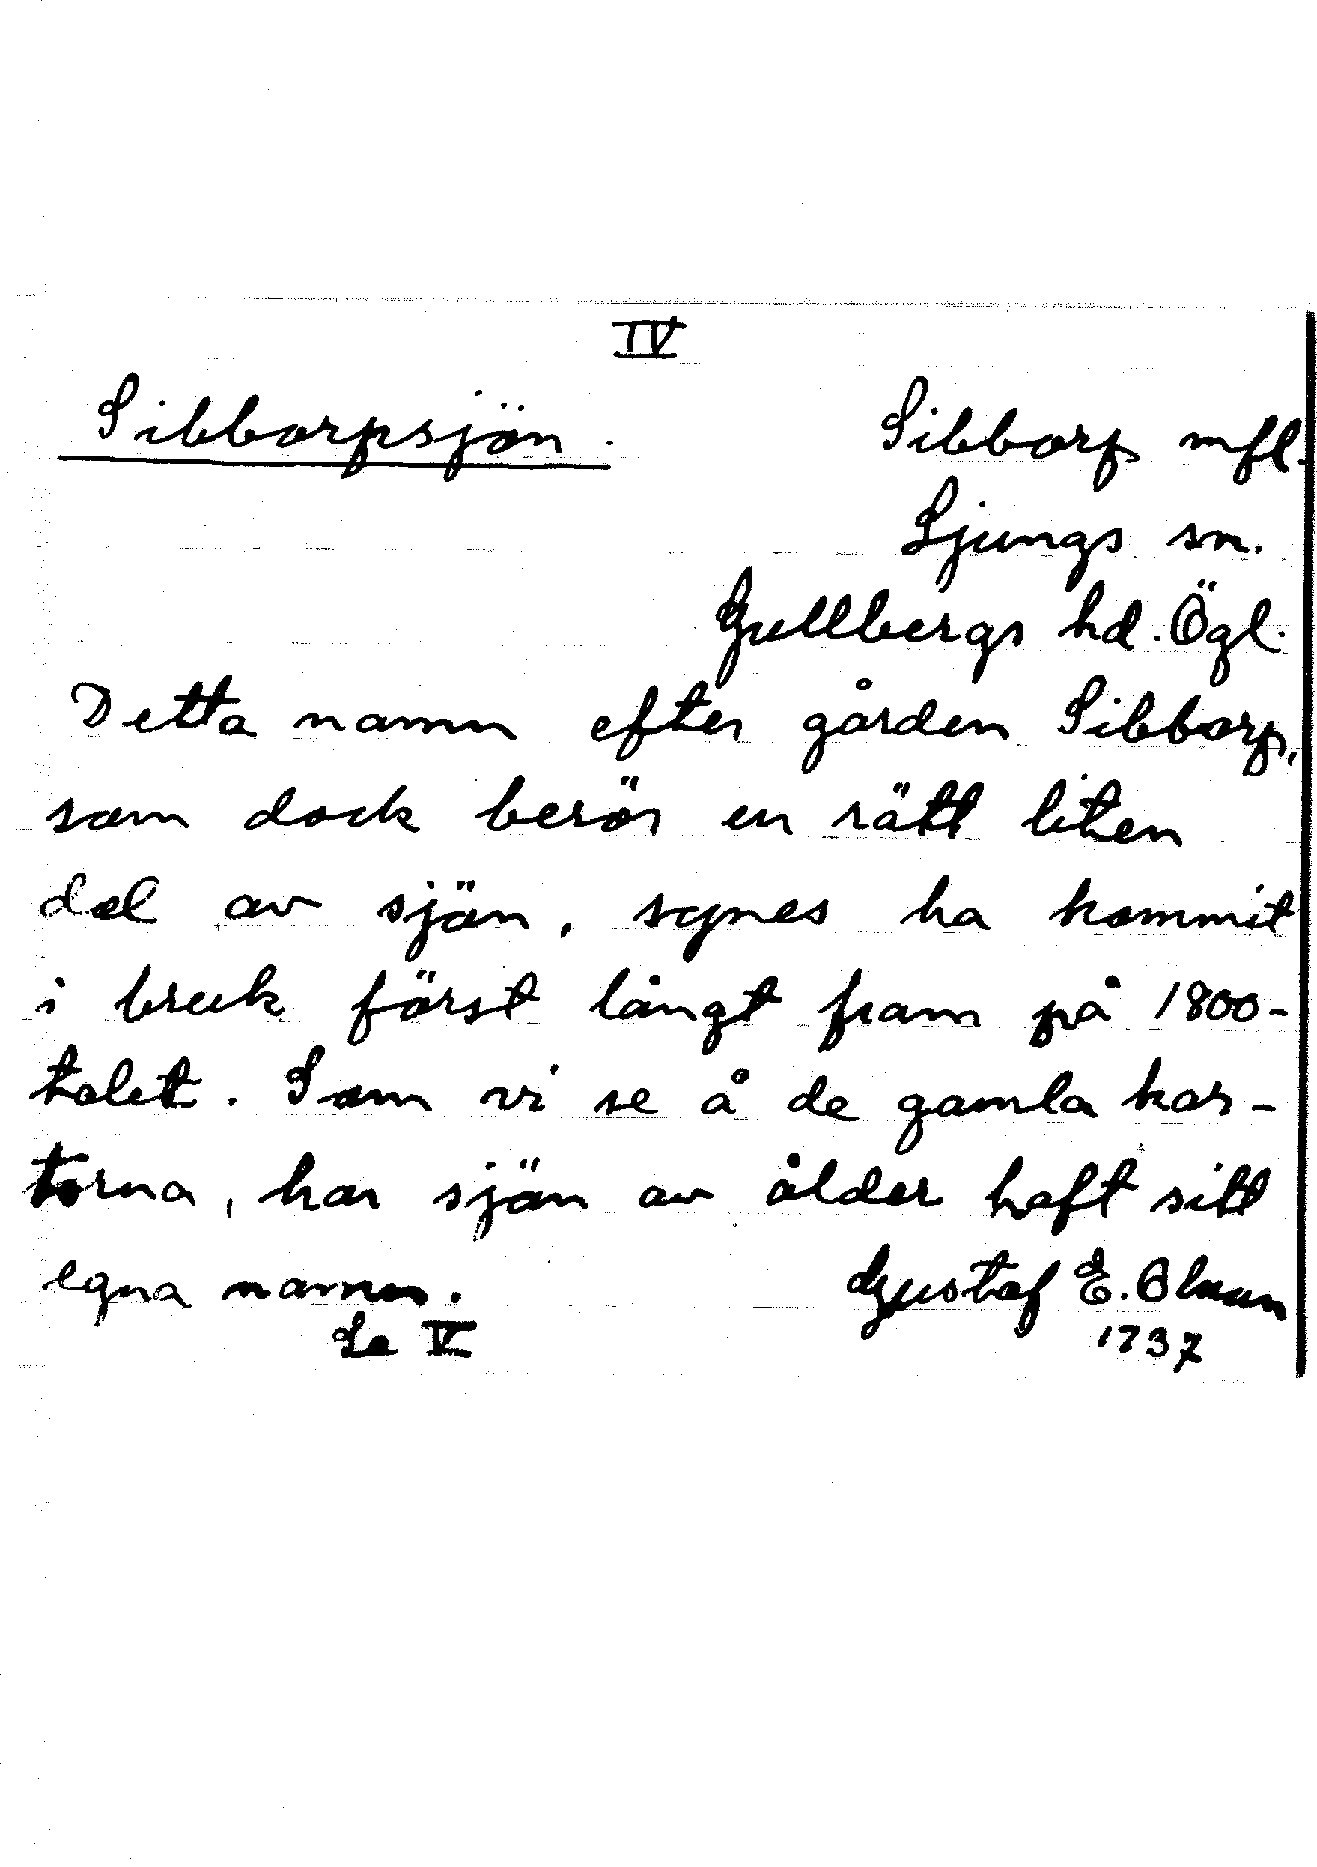 IV
Sibborpsjön.
Sibborp mfl.
Ljungs sn.
Gullbergs hd. Ögl.
Detta namn efter gården Sibborp,
som dock berör en rätt liten
del av sjön, synes ha kommit
i bruk först långt fram på 1800-
talet. Som vi se å de gamla kar-
torna, har sjön av ålder haft sitt
egna namn.
Se V
Gustaf E. Olsson
1737